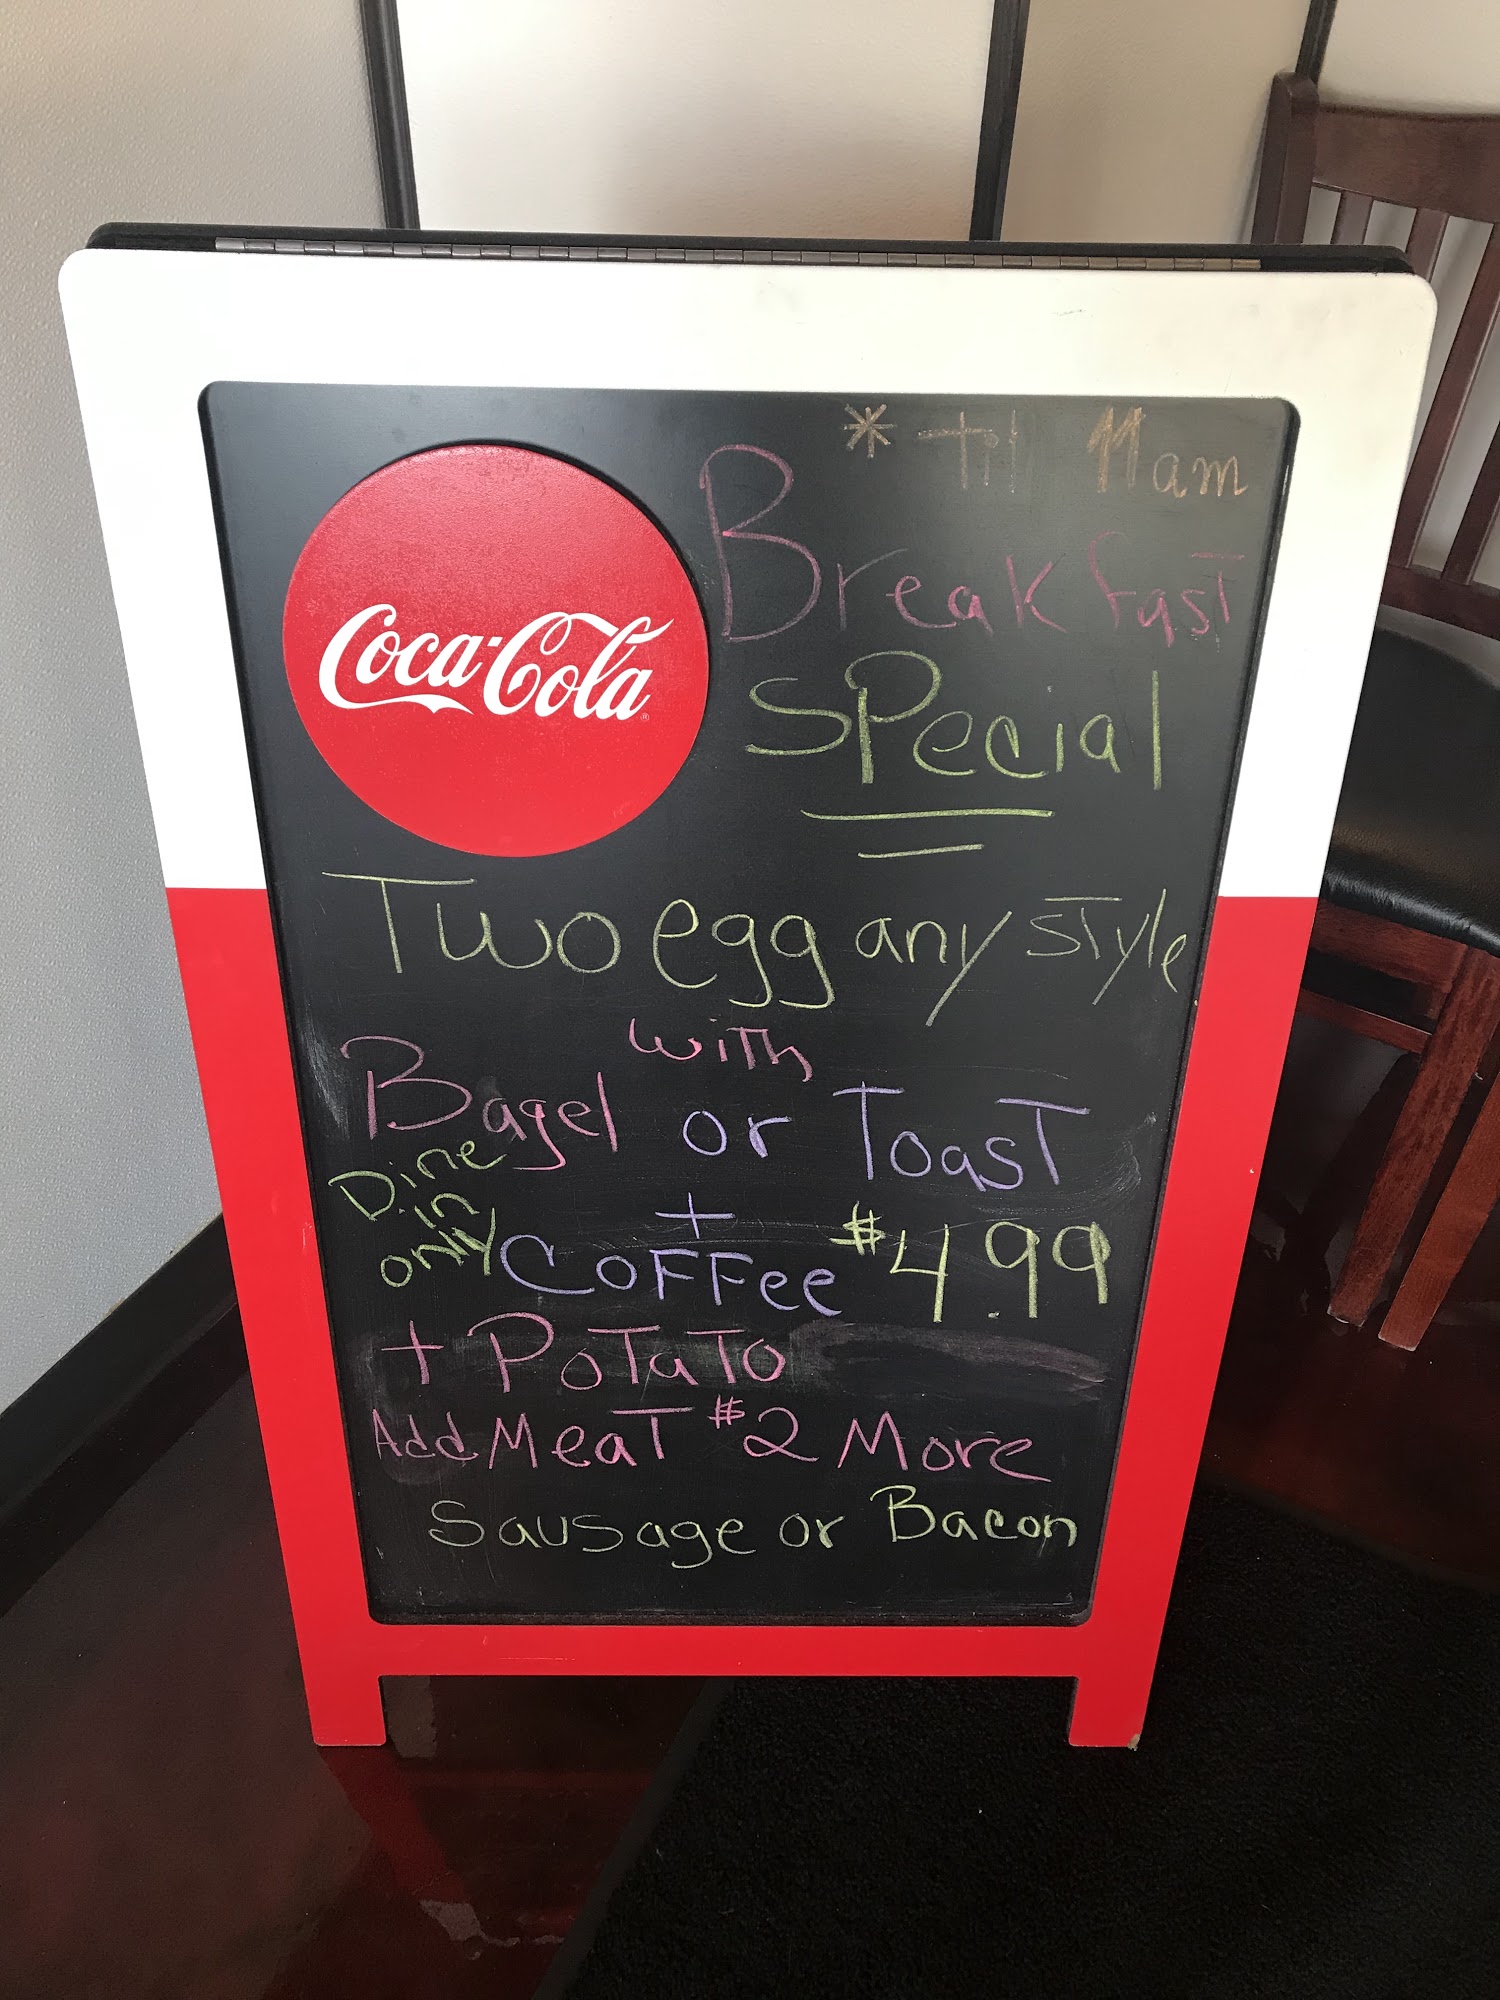 * til 11am
Breakfast
Coca-Cola
Special
Two egg any style
with
Bagel or Toast
Dine
in
only
+
Coffee $4.99
+ Potato
Add Meat $2 More
Sausage or Bacon